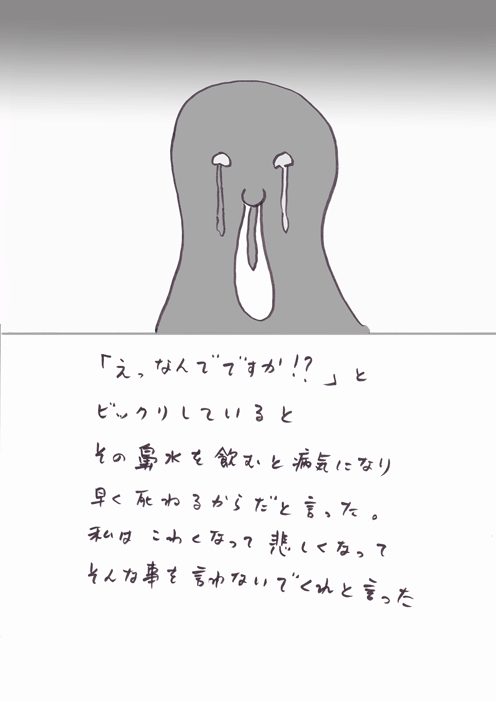 「えっなんでですか!?」と
ビックリしていると
その鼻水を飲むと病気になり
早く死ねるからだと言った。
私は こわくなって 悲しくなって
そんな事を言わないでくれと言った